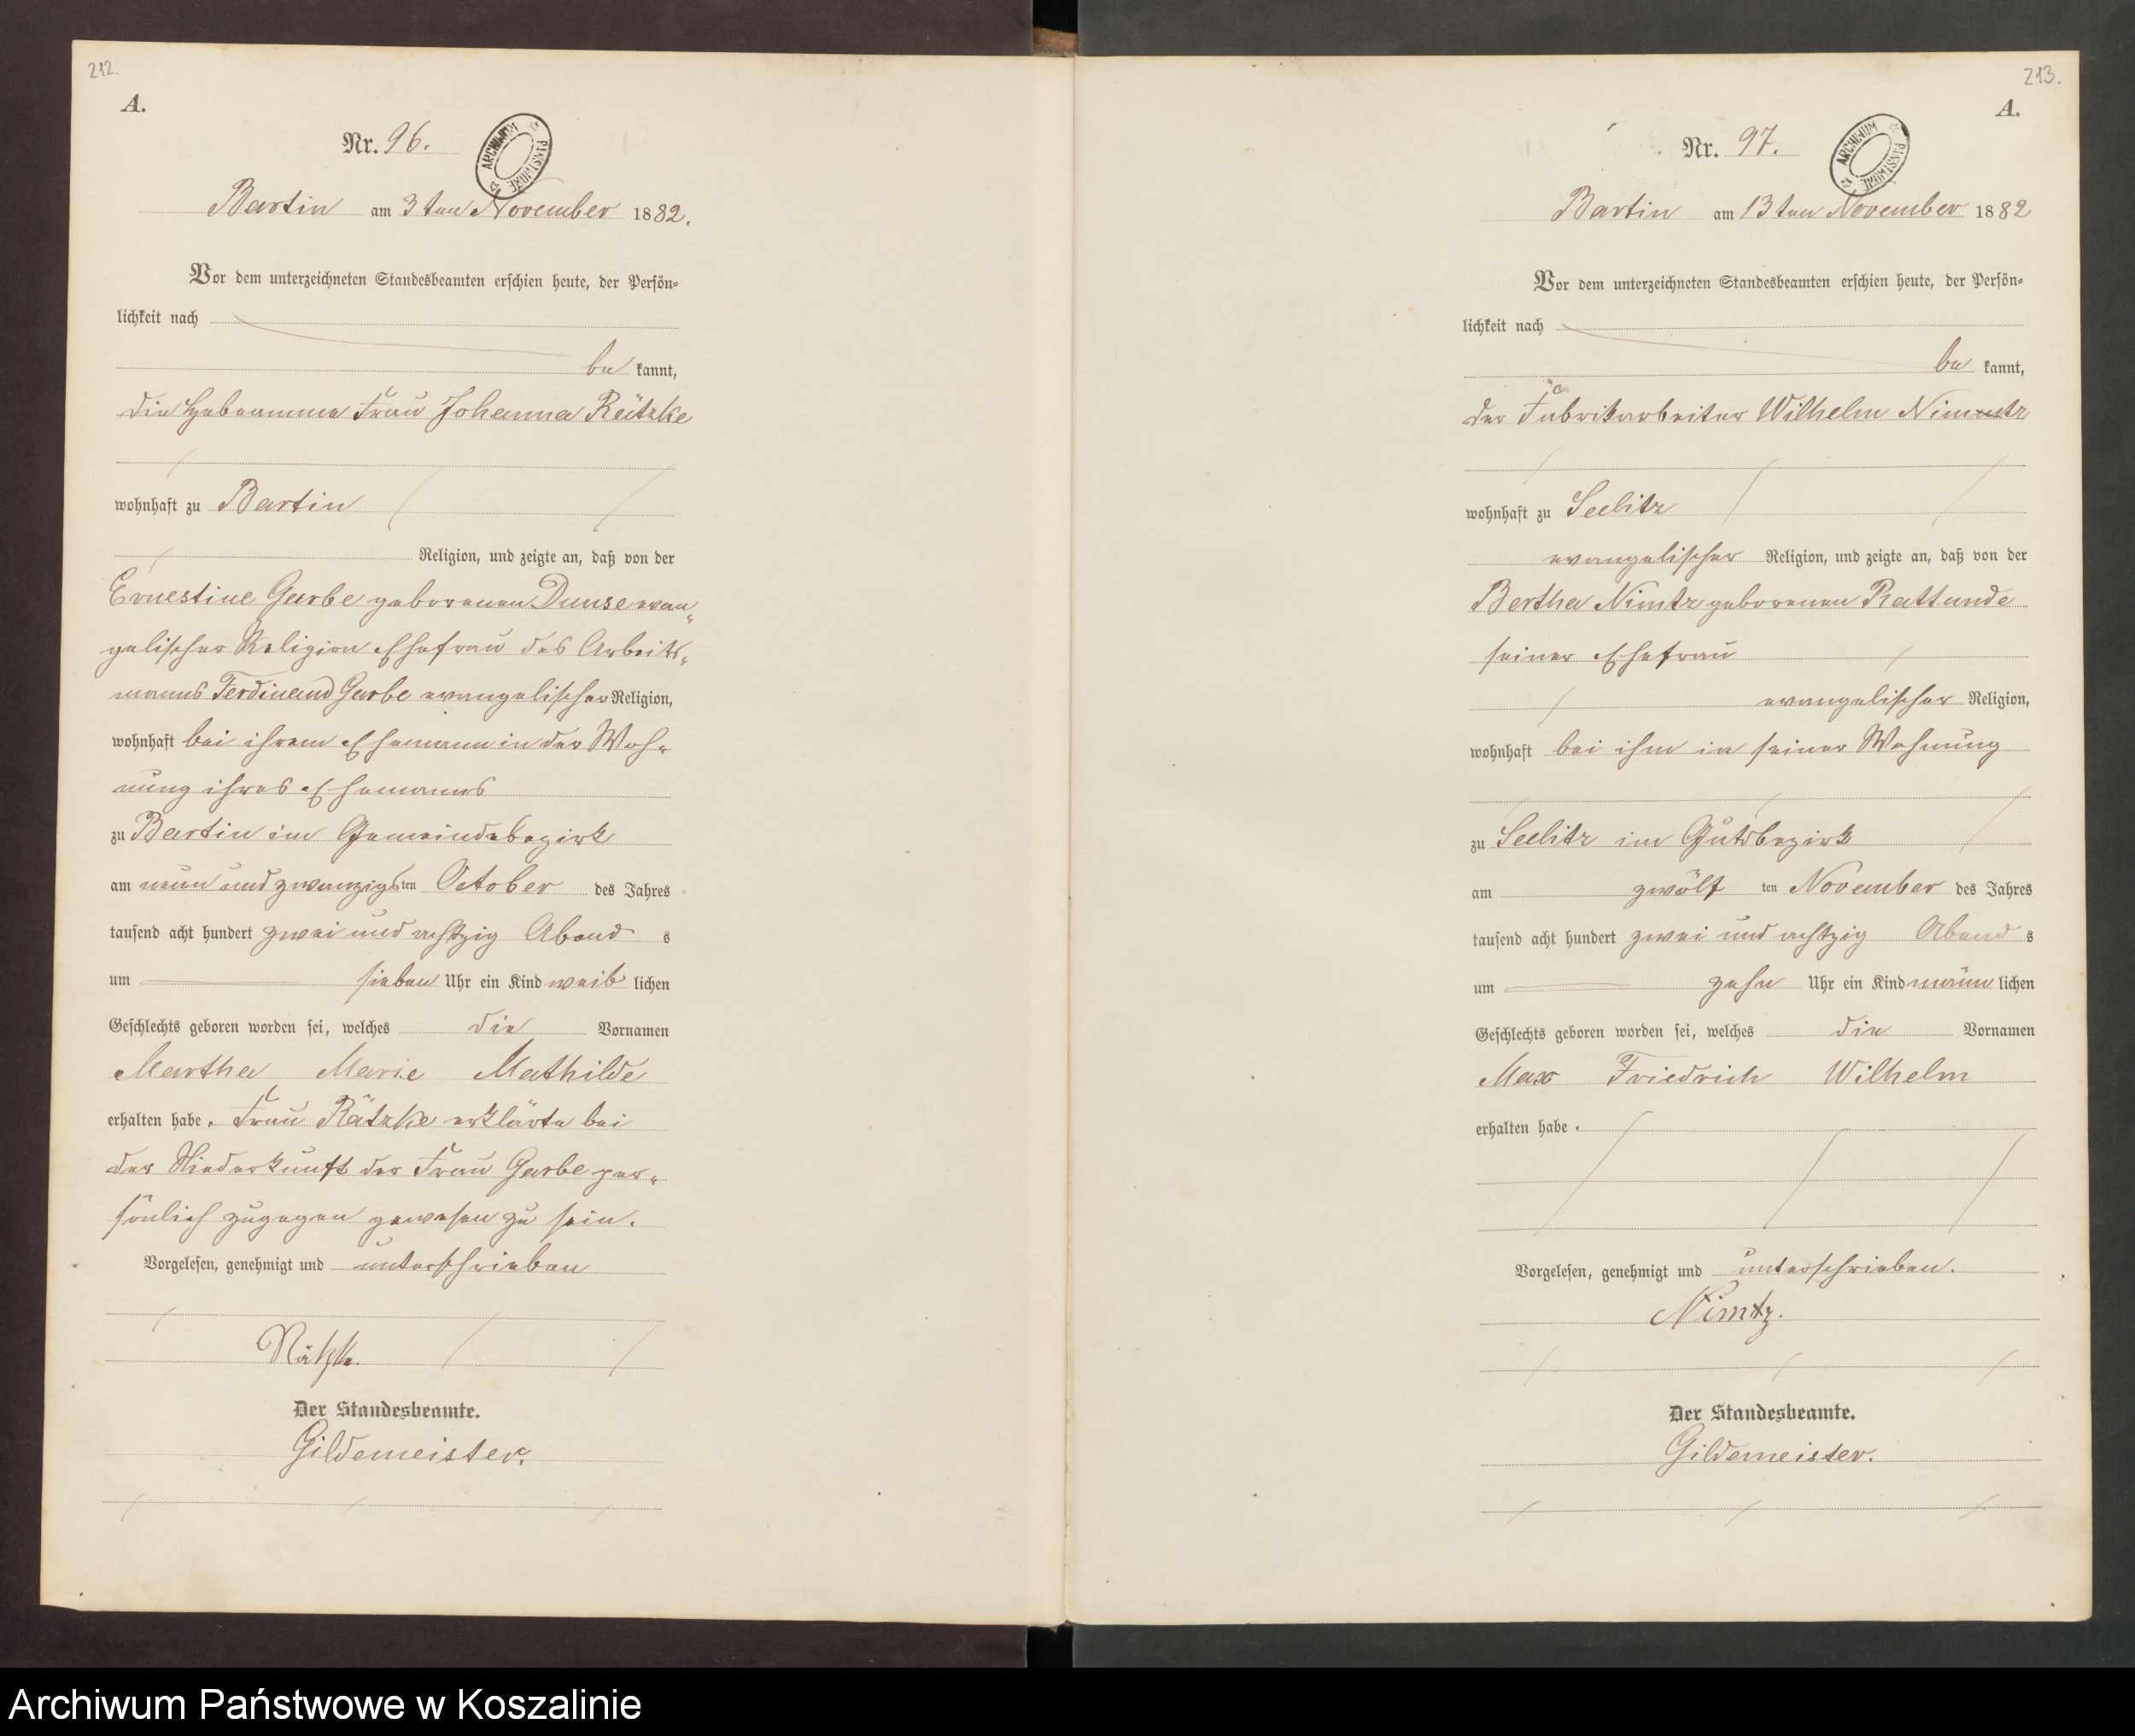 212.
A.
Nr. 96.
ARCHIWUM PAŃSTWOWE
Bartin am 3ten November 1882.
Vor dem unterzeichneten Standesbeamten erschien heute, der Persön=
lichkeit nach
be kannt,
die Hebeamme Frau Johanna Rätzke
wohnhaft zu Bartin
Religion, und zeigte an, daß von der
Ernestine Garbe geborenen Dunse evan„
gelischer Religion Ehefrau des Arbeits„
manns Ferdinand Garbe evangelischer Religion,
wohnhaft bei ihrem Ehemann in der Woh„
nung ihres Ehemanns
zu Bartin im Gemeindebezirk
am neun und zwanzigsten October des Jahres
tausend acht hundert zwei und achtzig Abend s
um sieben Uhr ein Kind weib lichen
Geschlechts geboren worden sei, welches die Vornamen
Martha Marie Mathilde
erhalten habe. Frau Rätzke erklärte bei
der Niederkunft der Frau Garbe per„
sönlich zugegen gewesen zu sein.
Vorgelesen, genehmigt und unterschrieben
Rätzke.
Der Standesbeamte.
Gildemeister.
213.
A.
Nr. 97.
ARCHIWUM PAŃSTWOWE
Bartin am 13ten November 1882
Vor dem unterzeichneten Standesbeamten erschien heute, der Persön=
lichkeit nach
be kannt,
der Fabrikarbeiter Wilhelm Nimtz
wohnhaft zu Seelitz
evangelischer Religion, und zeigte an, daß von der
Bertha Nimtz geborenen Rattunde
seiner Ehefrau
evangelischer Religion,
wohnhaft bei ihm in seiner Wohnung
zu Seelitz im Gutsbezirk
am zwölf ten November des Jahres
tausend acht hundert zwei und achtzig Abend s
um zehn Uhr ein Kind männ lichen
Geschlechts geboren worden sei, welches die Vornamen
Max Friedrich Wilhelm
erhalten habe.
Vorgelesen, genehmigt und unterschrieben.
Nimtz.
Der Standesbeamte.
Gildemeister.
Archiwum Państwowe w Koszalinie